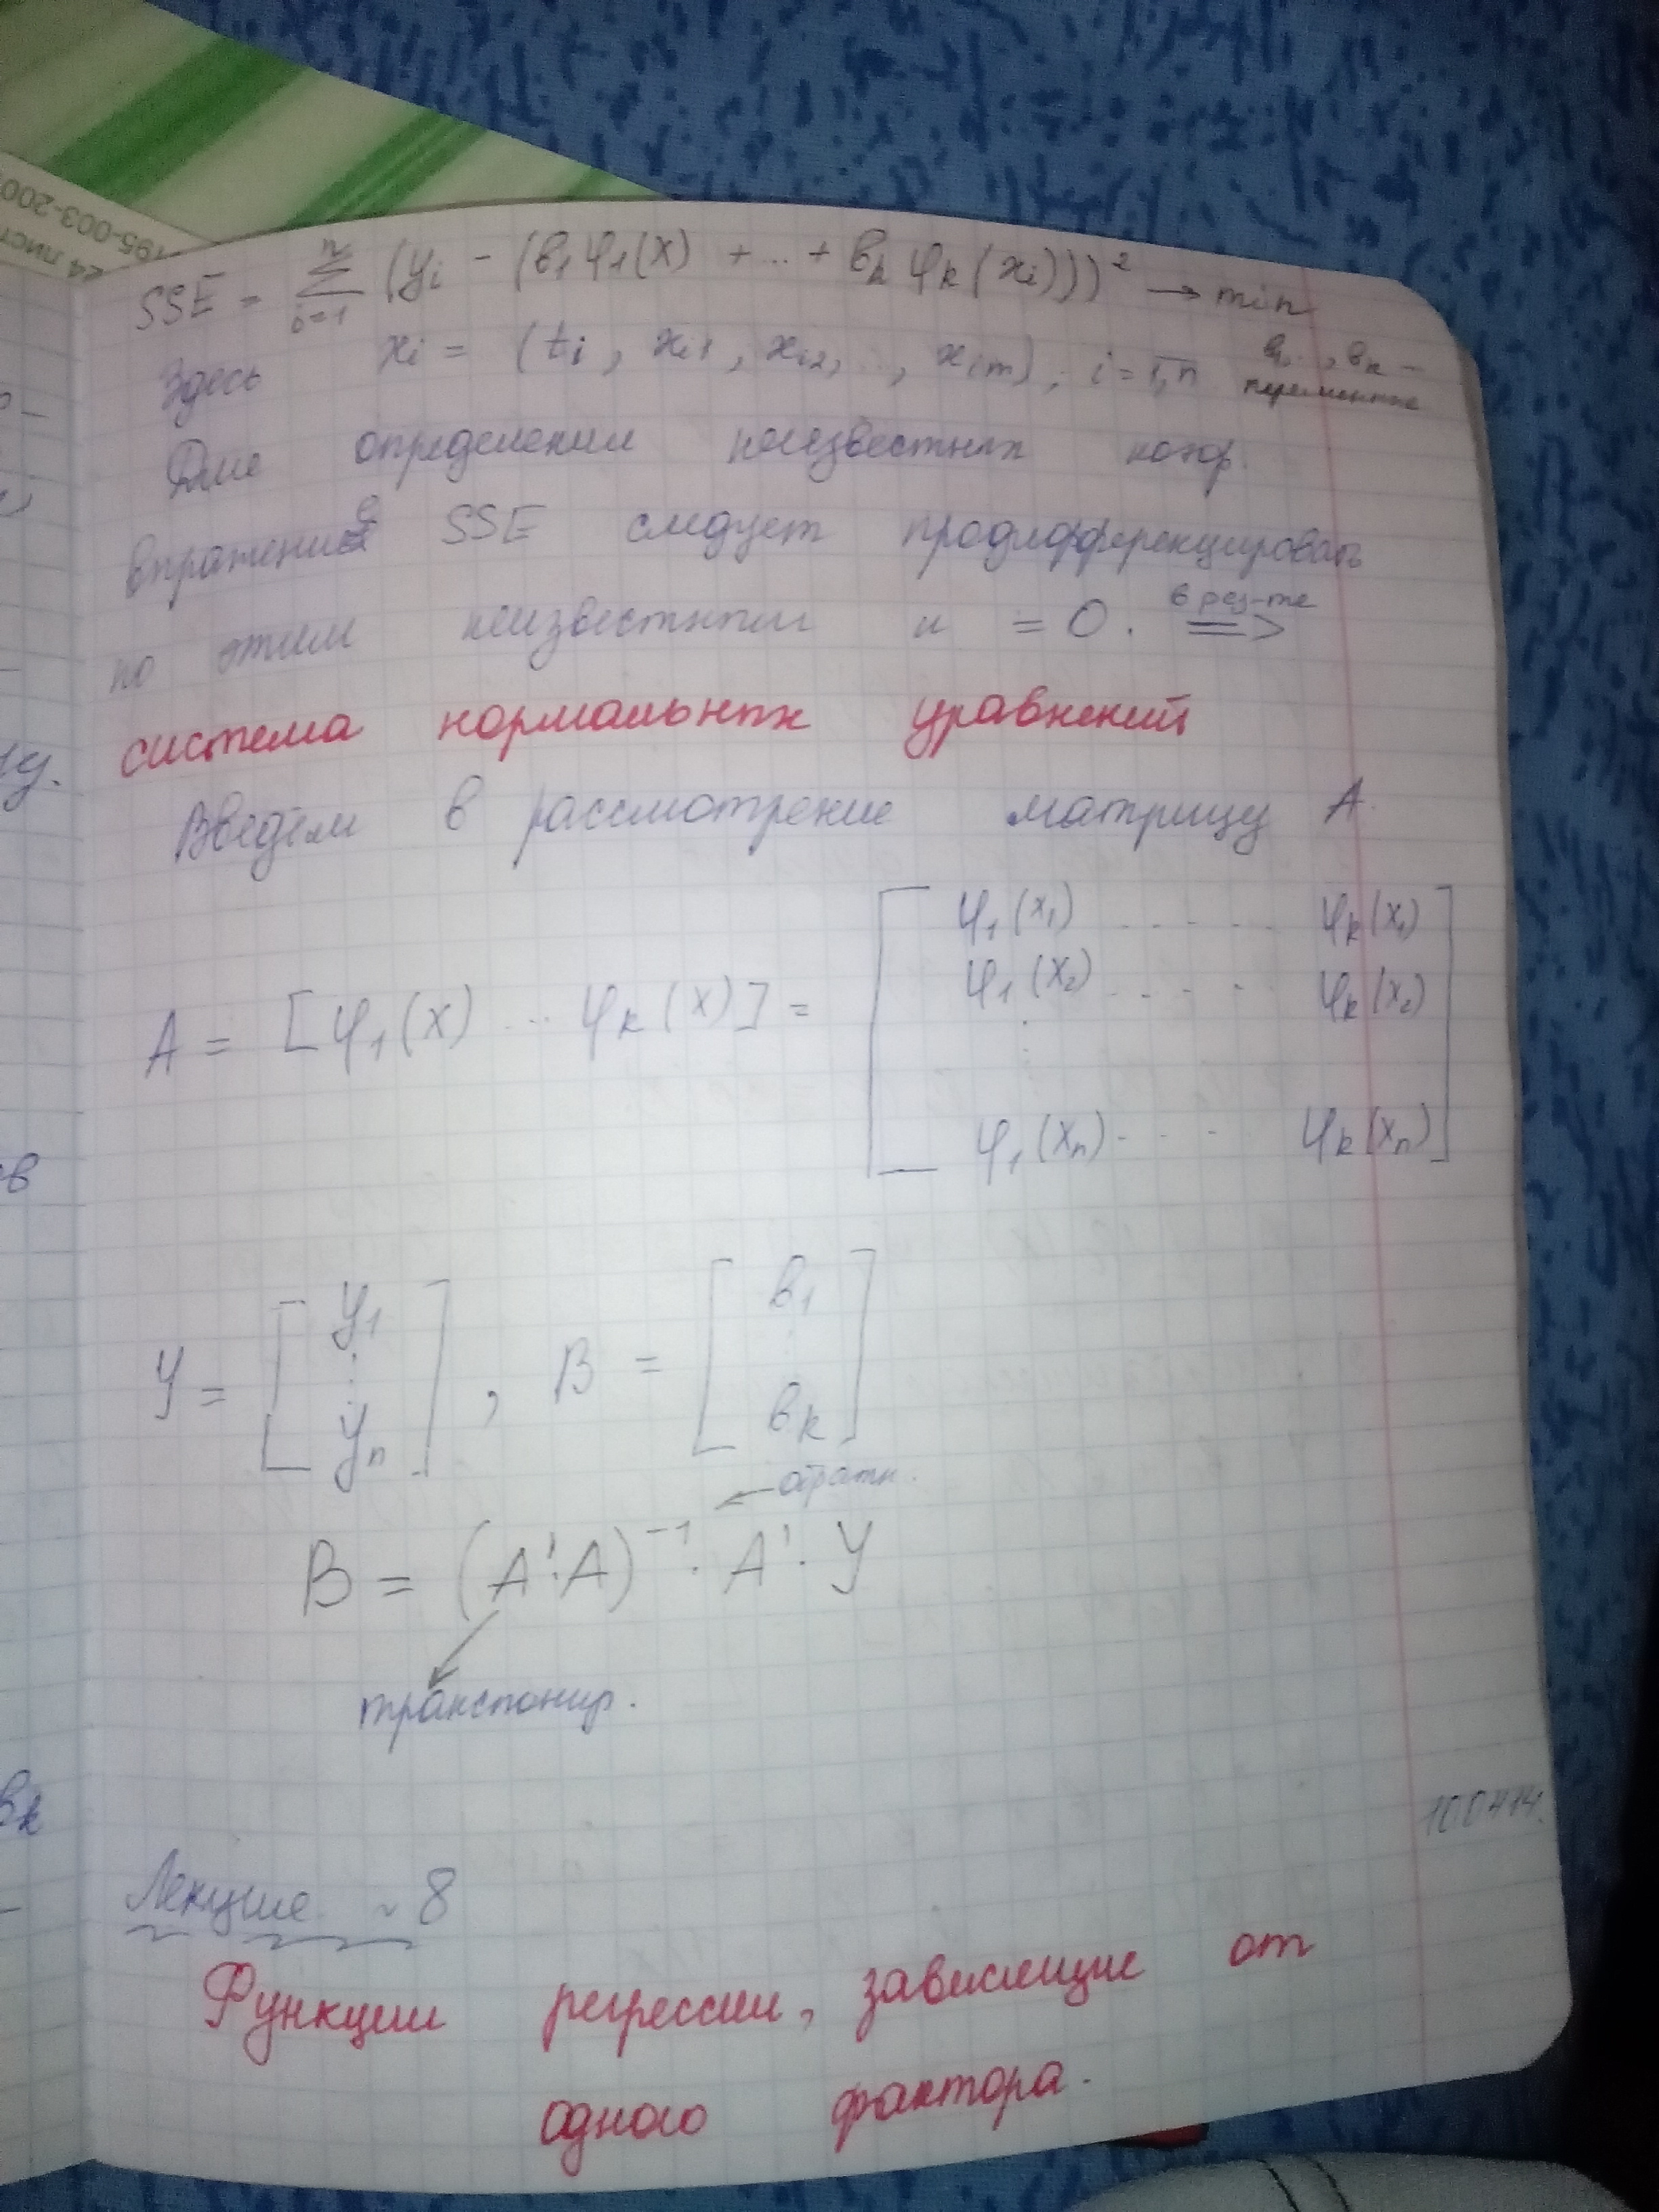 24 лист
195-003-200
SSE = Σ_{i=1}^{n} (yi - (в1 φ1(x) + ... + вk φk(xi)))² → min
в1, .., вk -
Здесь xi = (ti, xi1, xi2, .., xim), i = 1,n переменные
Для определения неизвестных коэф.
выражение SSE следует продифференцировать
по этим неизвестным и = 0. в рез-те =>
система нормальных уравнений
Введём в рассмотрение матрицу A
φ1(x1) ..... φk(x1)
φ1(x2) ..... φk(x2)
A = [φ1(x) ... φk(x)] =
φ1(xn) .... φk(xn)
y1 в1
Y = ⋮ , B = ⋮
yn вk
обратн.
B = (A'·A)⁻¹ · A' · Y
транспонир.
вk
Лекция ~8
Функции регрессии, зависящие от
одного фактора.